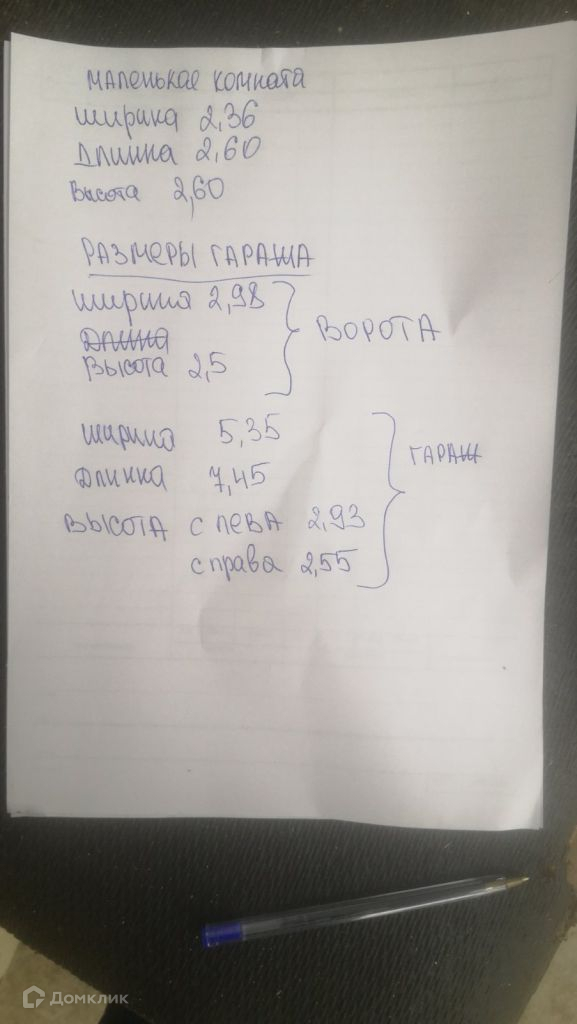 маленькая комната
ширина 2,36
Длинна 2,60
Высота 2,60
РАЗМЕРЫ ГАРАЖА
ширина 2,98
Длина
ВОРОТА
Высота 2,5
ширина 5,35
Длинна 7,45
ГАРАЖ
ВЫСОТА С ЛЕВА 2,93
с права 2,55
Домклик